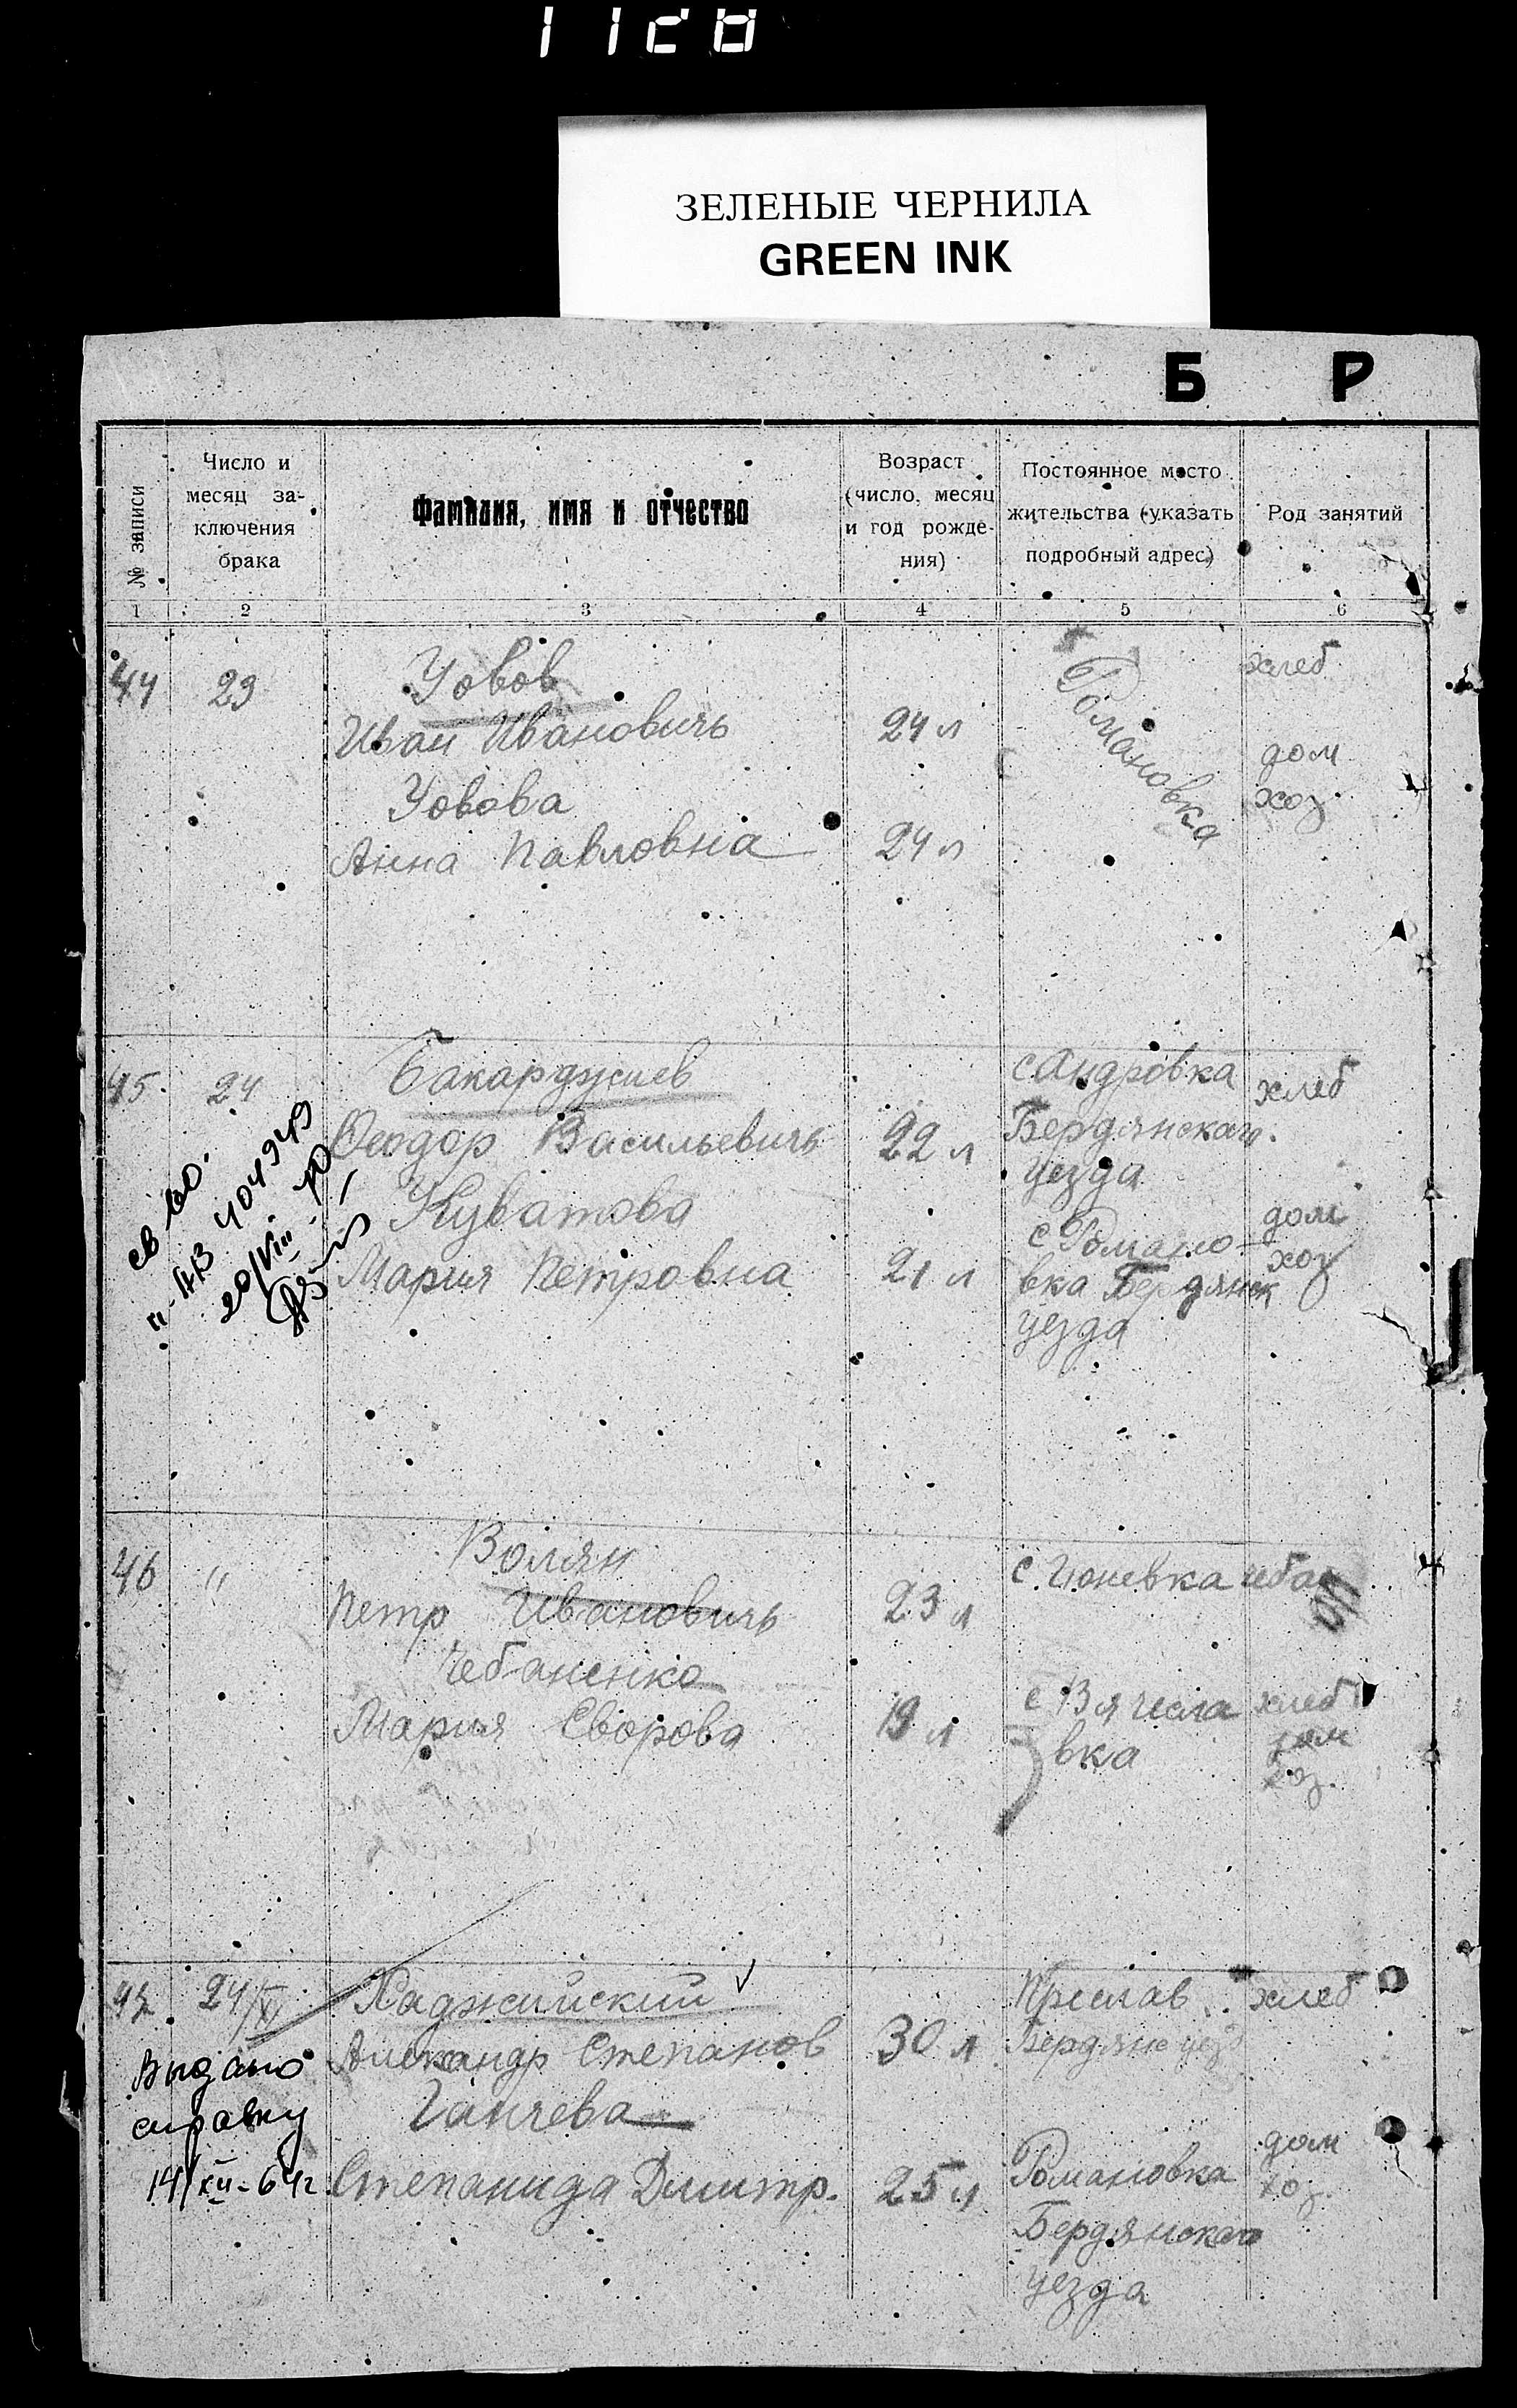 1128
ЗЕЛЕНЫЕ ЧЕРНИЛА
GREEN INK
Б Р
№ записи
Число и
месяц за-
ключения
брака
Фамилия, имя и отчество
Возраст
(число, месяц
и год рожде-
ния)
Постоянное место
жительства (указать
подробный адрес)
Род занятий
1 2 3 4 5 6
44 23 Уовов Романовка хлеб
Иван Ивановичь 24 л
дом
Уовова хоз.
Анна Павловна 24 л
45. 24 Бакарджиев с Андровка хлеб
Феодор Васильевичь 22 л Бердянскаго
уезда
св во.
II-АВ 404949
20/VIII-
Куватова с Романо- дом
Мария Петровна 21 л вка Бердянск хоз
уезда
46 " Волян с. Гюневка
Петр Ивановичь 23 л
Чебаненко
Мария Егорова 19 л с Вячесла хлеб
вка дом
хоз.
47 24/XI Хаджийский Преслав хлеб
Александр Степанов 30 л Бердянс уезд
Ганчева
Степанида Дмитр. 25 л Романовка дом
хоз.
Бердянскаго
уезда
Выдано
справку
14/XII-64г